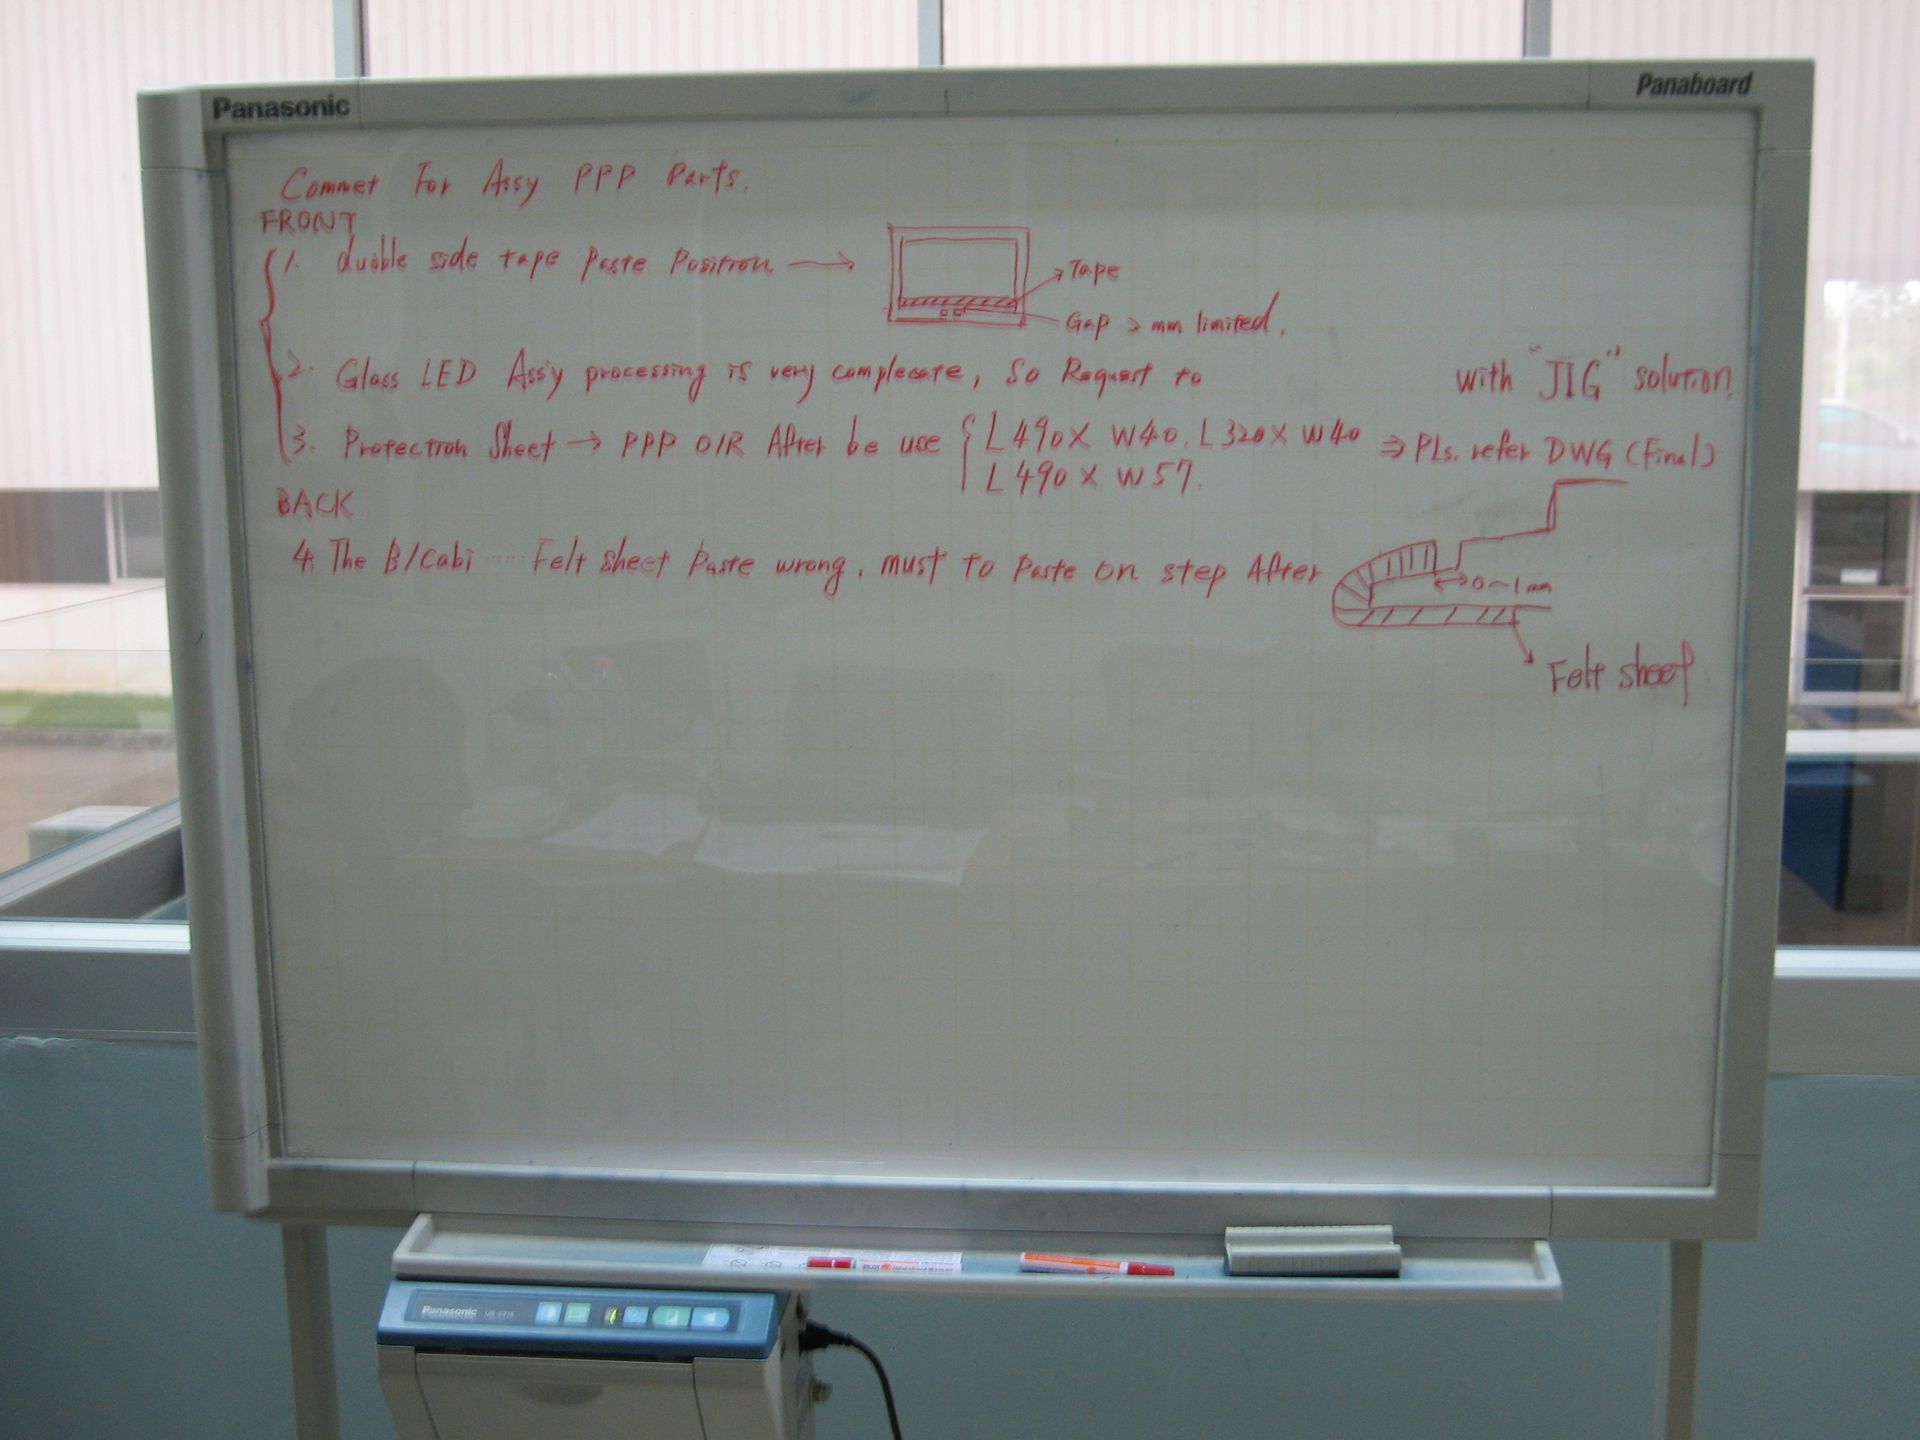 Panasonic
Panaboard
Commet For Assy PPP Parts.
FRONT
1. duoble side tape Paste Position →
Tape
Gap > mm limited.
2. Glass LED Ass'y processing is very complecate, So Request to with "JIG" solution.
3. Protection Sheet → PPP O/R After be use { L490 X W40, L320 X W40 ⇒ PLs. refer DWG (Final)
L490 X W57.
BACK
4. The B/Cabi ····· Felt sheet Paste wrong, must to Paste on step After
0~1mm
Felt sheet
PILOT
Panasonic